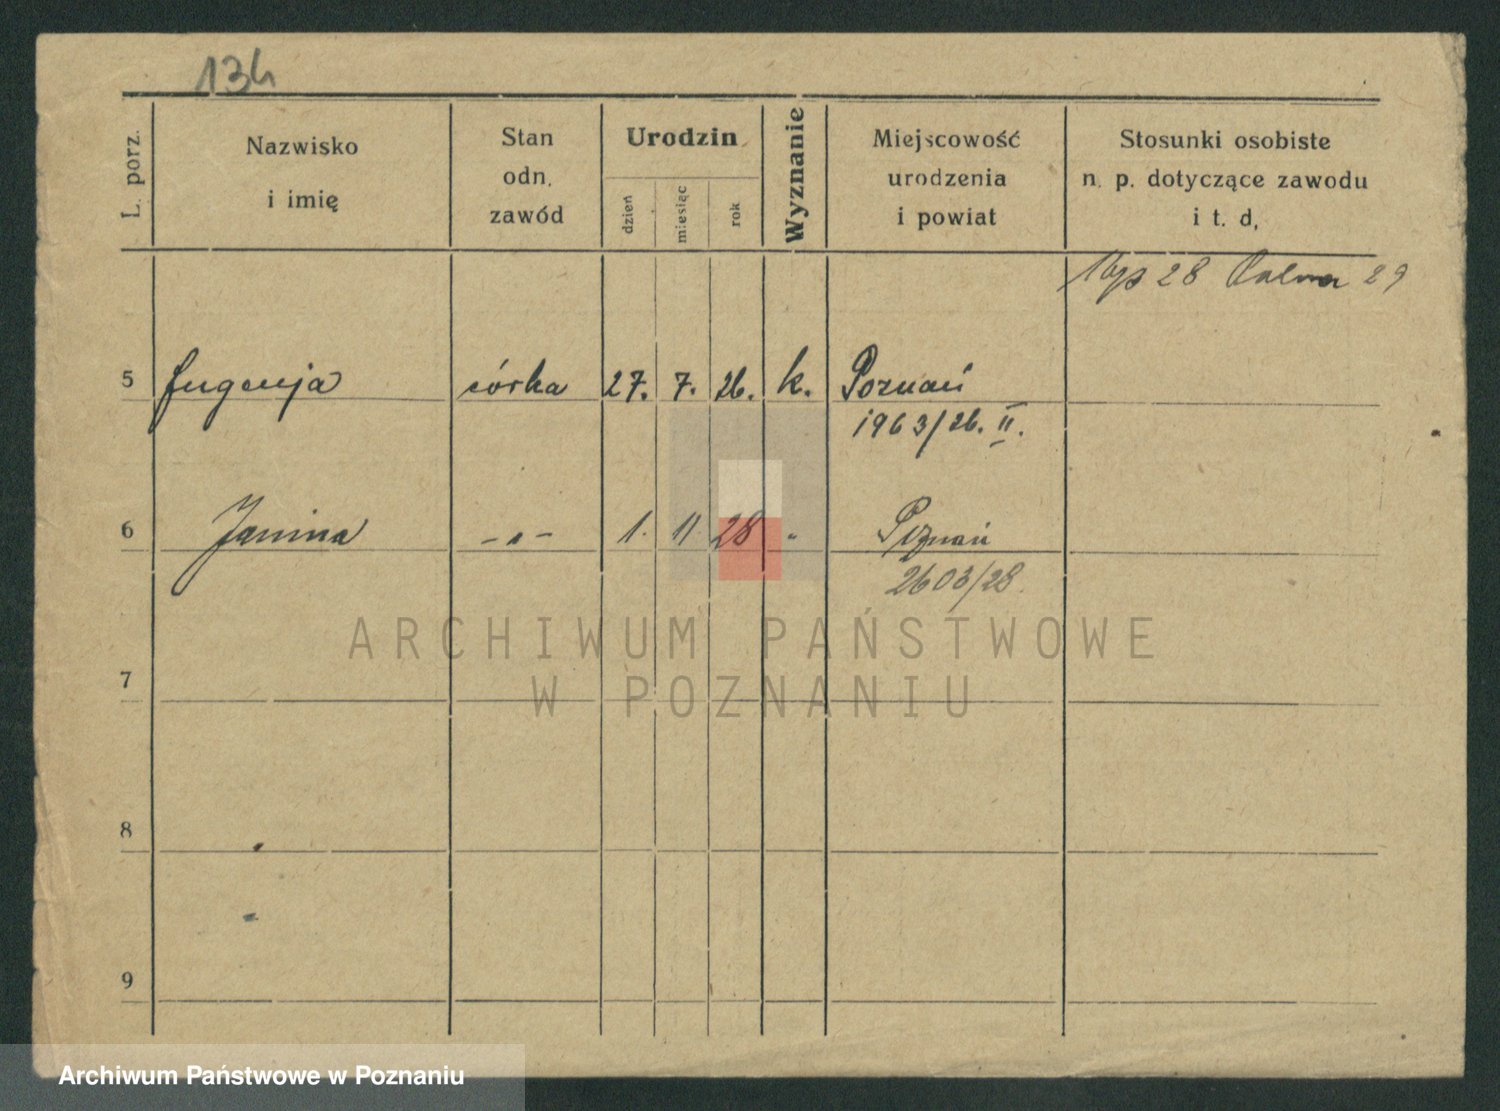 134
L. porz.
Nazwisko
i imię
Stan
odn.
zawód
Urodzin
dzień
miesiąc
rok
Wyznanie
Miejscowość
urodzenia
i powiat
Stosunki osobiste
n. p. dotyczące zawodu
i t. d.
28 29
5 Eugenja córka 27. 7. 26. k. Poznań
1963/26. II.
6 Janina -"- 1. 11 28 " Poznań
2603/28.
ARCHIWUM PAŃSTWOWE
W POZNANIU
7
8
9
Archiwum Państwowe w Poznaniu